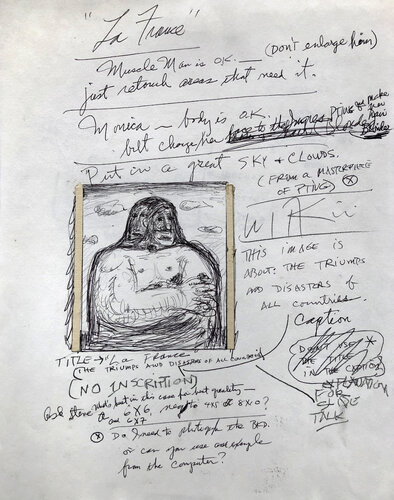 "La France"
Muscle Man is O.K. — (Don't enlarge him)
just retouch areas that need it.
Monica — body is O.K.
but change her
and make
her
Hair
Blonde
Put in a great SKY & CLOUDS.
(FROM A MASTERPIECE
OF PTING) ⓧ
THIS IMAGE IS
ABOUT: THE TRIUMPS
AND DISASTERS OF
ALL COUNTRIES.
Caption
TITLE → "La France
(THE TRIUMPS AND DISASTERS OF ALL COUNTRIES)
(NO INSCRIPTION)
DON'T USE
THE TITLE
IN THE CAPTION
EXPLANATION
FOR
SLIDE
TALK
Ask Steve what's best in this case for best quality —
6X6, 4X5 or 8X10?
or 6X7
ⓧ Do I need to photograph the
or can you use an example
from the computer?